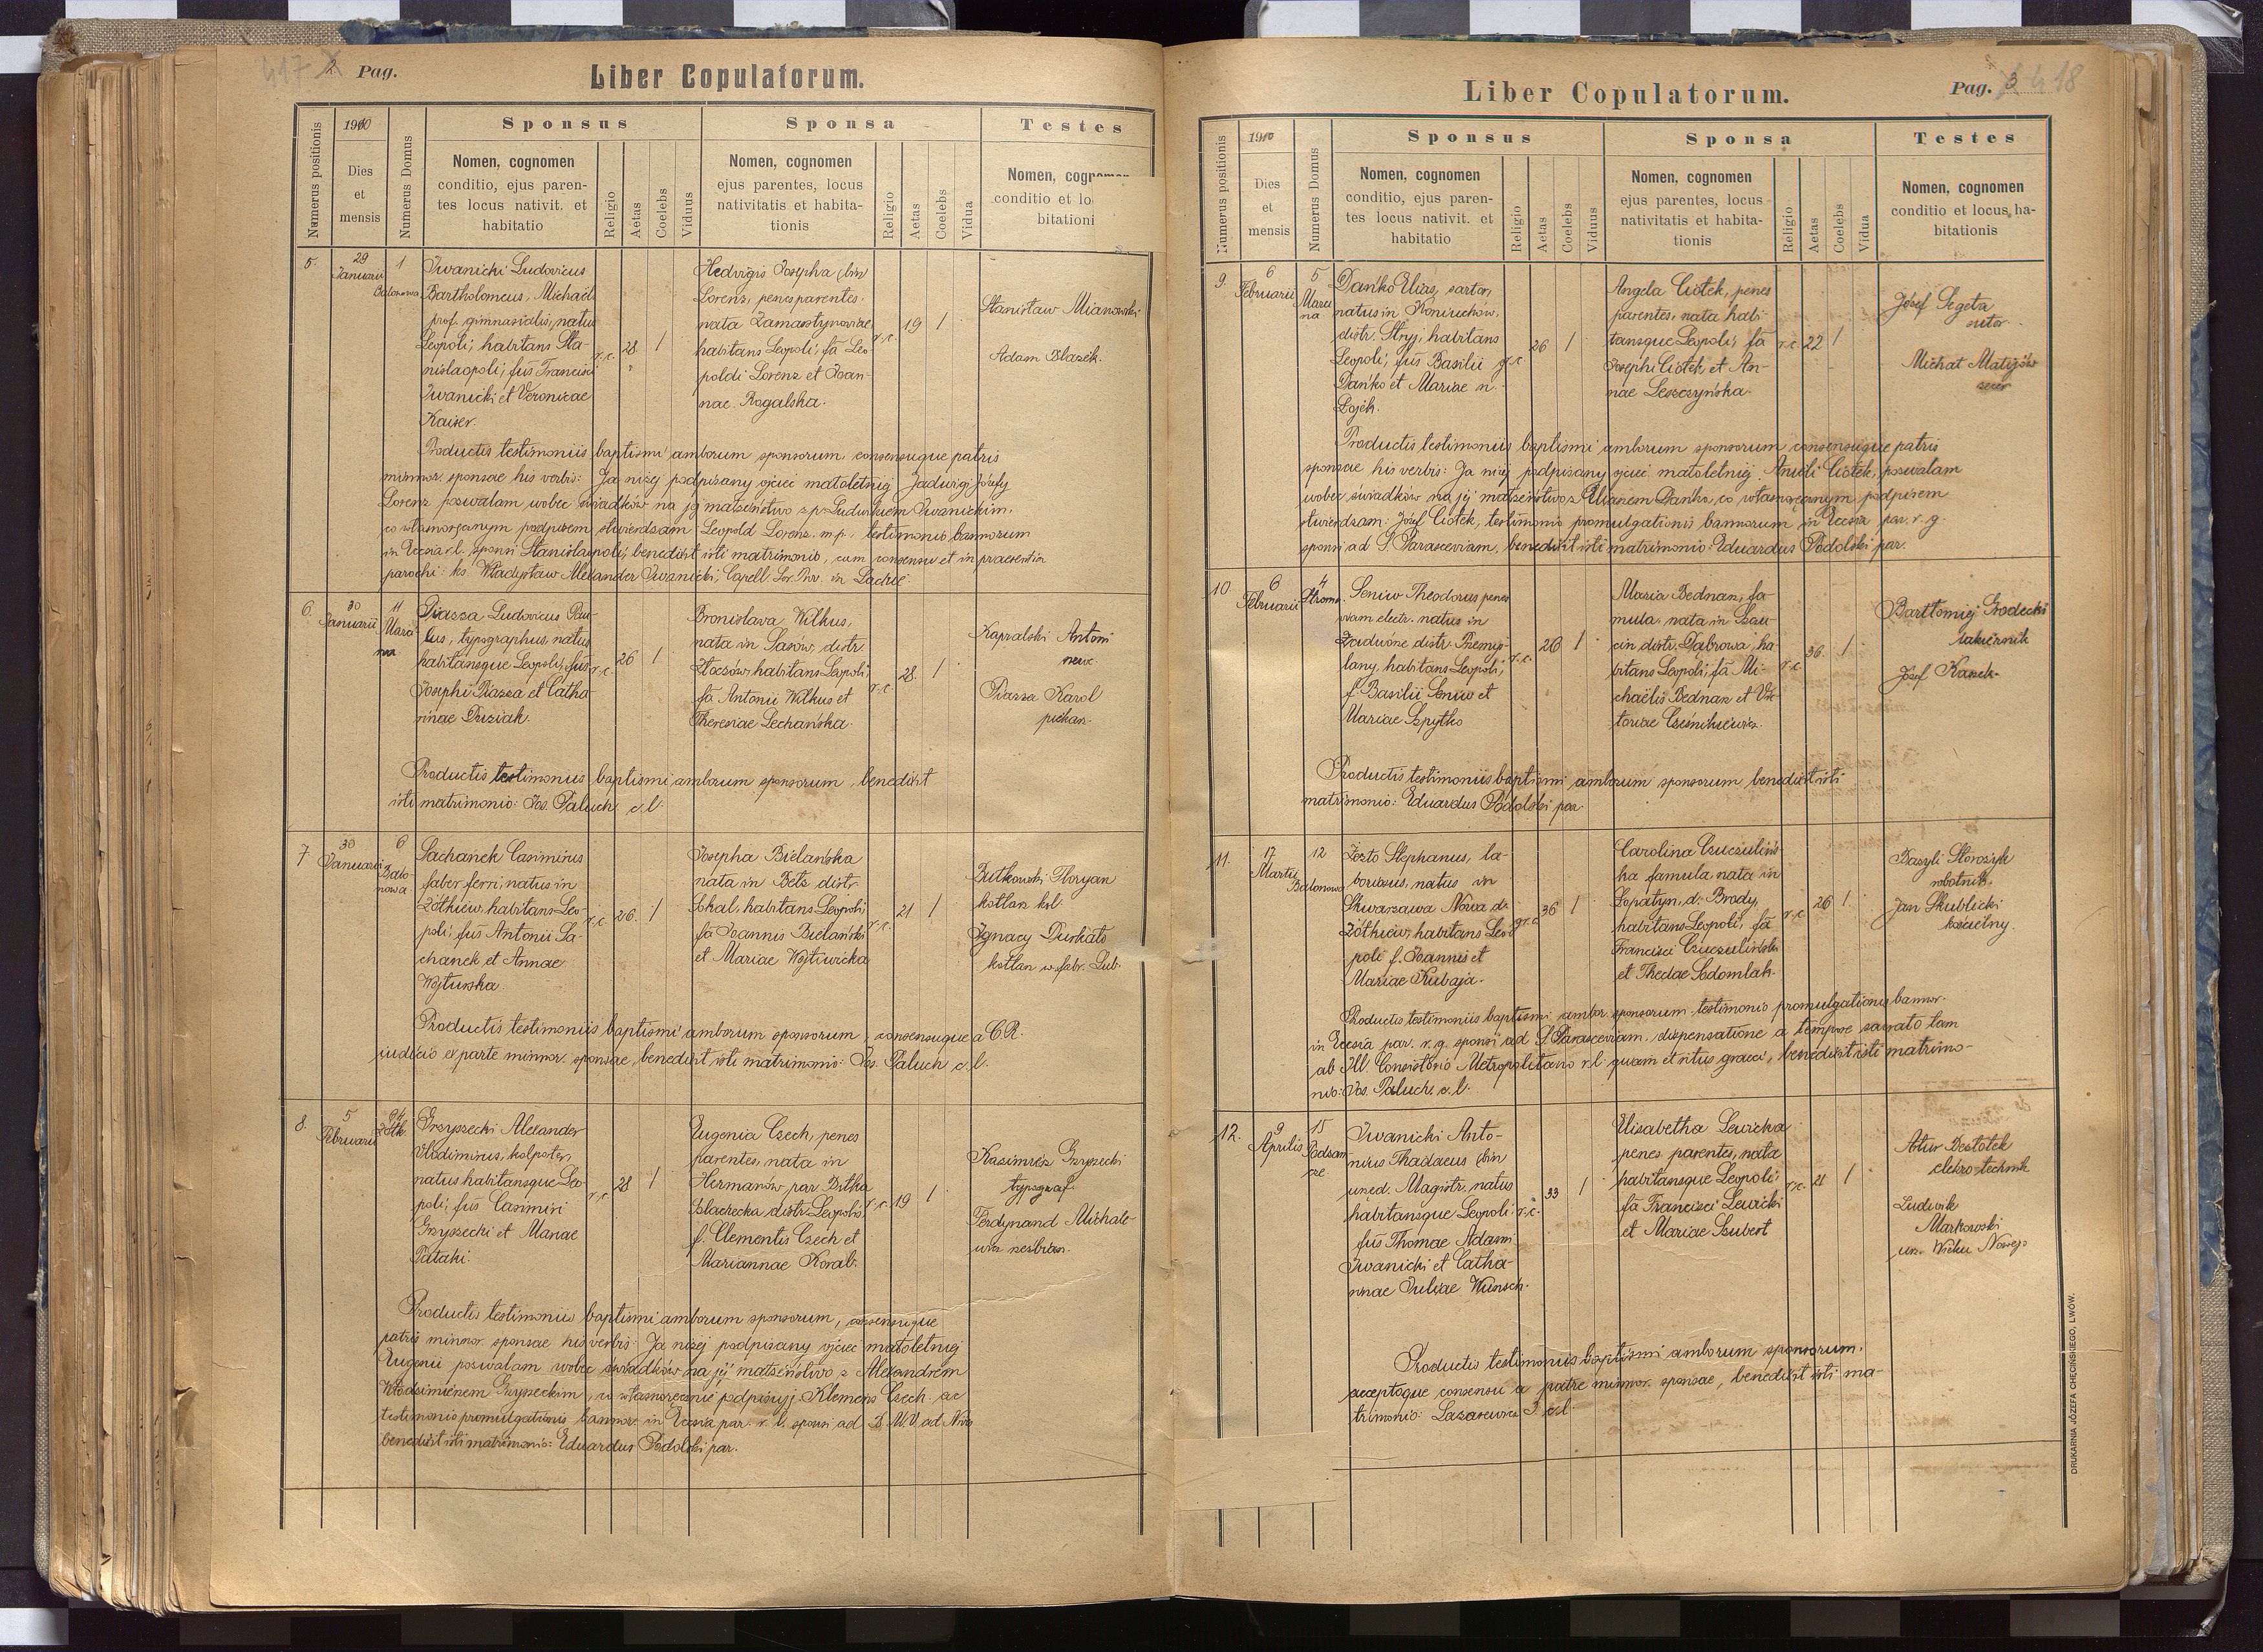 417 2 Pag.
Liber Copulatorum.
Numerus positionis
1910
Dies
et
mensis
Numerus Domus
Sponsus
Nomen, cognomen
conditio, ejus paren-
tes locus nativit. et
habitatio
Religio
Aetas
Coelebs
Viduus
Sponsa
Nomen, cognomen
ejus parentes, locus
nativitatis et habita-
tionis
Religio
Aetas
Coelebs
Vidua
Testes
Nomen, cognomen
conditio et lo
bitationi
5.
29
Januarii
1
Balonowa
Iwanicki Ludovicus
Bartholomeus, Michaël
prof. gimnasialis, natus
Leopoli, habitans Sta-
nislaopoli, fus Francisci
Iwanicki et Veronicae
Kaiser.
r.c.
28
1
Hedvigis Josepha (bin
Lorenz, penes parentes
nata Zamarstynoviae,
habitans Leopoli, fa Leo-
poldi Lorenz et Joan-
nae Rogalska.
r.c.
19
1
Stanisław Mianowski
Adam Blazek.
Productis testimoniis baptismi amborum sponsorum consensuque patris
minnor. sponsae his verbis: Ja niżej podpisany ojciec małoletniej Jadwigi Józefy
Lorenz pozwalam wobec świadków na jej małżeństwo z p. Ludwikiem Iwanickim,
co własnoręcznym podpisem stwierdzam: Leopold Lorenz m.p. testimonio bannorum
in Eccsia r.l. sponsi Stanislaopoli, benedixit isti matrimonio, cum consensu et in praesentia
parochi: ks. Władysław Alexander Iwanicki, Capell. in Lackie.
6.
30
Januarii
11
Marci
na
Piazza Ludovicus Pau-
lus, typographus, natus
habitansque Leopoli, fus
Josephi Piazza et Catha-
rinae Druziak.
r.c.
26
1
Bronislava Wilkus,
nata in Sasów, distr.
Złoczów, habitans Leopoli,
fa Antonii Wilkus et
Theresiae Lechańska.
r.c.
28
1
Kapralski Antoni
Piazza Karol
piekarz.
Productis testimoniis baptismi amborum sponsorum, benedixit
isti matrimonio: Jos. Paluch c.l.
7.
30
Januarii
6
Balo
nowa
Sachanek Casimirus
faber ferri, natus in
Żółkiew, habitans Leo-
poli, fus Antonii Sa-
chanek et Annae
Wojturska.
r.c.
26.
1
Josepha Bielańska
nata in Bełz distr.
Sokal, habitans Leopoli
fa Joannis Bielański
et Mariae Wojtiwicka
r.c.
21
1
Butkowski Floryan
kotlarz kol.
Ignacy Durkało
kotlarz w fabr. Lub.
Productis testimoniis baptismi amborum sponsorum, consensuque a C.R.
judicio ex parte minnor. sponsae, benedixit isti matrimonio: Jos. Paluch c.l.
8.
5
Februarii
94
Żółk.
Grzyszecki Alexander
Vlodimirus, kolporter,
natus habitansque Leo-
poli, fus Casimiri
Grzyszecki et Mariae
Pataki.
r.c.
28
1
Eugenia Czech, penes
parentes, nata in
Hermanów par. Bitka
Szlachecka distr. Leopolis
f. Clementis Czech et
Mariannae Korab.
r.c.
19
1
Kazimierz Grzyszecki
typograf.
Ferdynand Michale-
wicz rzeźbiarz.
Productis testimoniis baptismi amborum sponsorum, consensuque
patris minnor. sponsae his verbis: Ja niżej podpisany ojciec małoletniej
Eugenii pozwalam wobec świadków na jej małżeństwo z Alexandrem
Włodzimierzem Grzyszeckim, i własnoręcznie podpisuję. Klemens Czech ac
testimonio promulgationis bannor. in Eccsia par. r. l. sponsi ad B.M.V. ad Nives
benedixit isti matrimonio: Eduardus Podolski par.
Liber Copulatorum.
Pag. 3 418
Numerus positionis
1910
Dies
et
mensis
Numerus Domus
Sponsus
Nomen, cognomen
conditio, ejus paren-
tes locus nativit. et
habitatio
Religio
Aetas
Coelebs
Viduus
Sponsa
Nomen, cognomen
ejus parentes, locus
nativitatis et habita-
tionis
Religio
Aetas
Coelebs
Vidua
Testes
Nomen, cognomen
conditio et locus ha-
bitationis
9.
6
Februarii
5
Marci
na
Dańko Elias, sartor,
natus in Koniuchów,
distr. Stryj, habitans
Leopoli, fus Basilii
Dańko et Mariae n.
Łojek.
gr.c.
26
1
Angela Ciołek, penes
parentes, nata habi-
tansque Leopoli, fa
Josephi Ciołek et An-
nae Leszczyńska.
r.c.
22
1
Józef Segeta
sutor.
Michał Matijów
Productis testimoniis baptismi amborum sponsorum consensuque patris
sponsae his verbis: Ja niżej podpisany ojciec małoletniej Anieli Ciołek, pozwalam
wobec świadków na jej małżeństwo z Eliaszem Dańko, co własnoręcznym podpisem
stwierdzam: Józef Ciołek, testimonio promulgationis bannorum in Eccsia par. r. g.
sponsi ad S. Parasceviam, benedixit isti matrimonio: Eduardus Podolski par.
10.
6
Februarii
4
Seniw Theodorus penes
viam electr. natus in
Zadwórze distr. Przemyś-
lany, habitans Leopoli,
f. Basilii Seniw et
Mariae Szpytko
r.c.
26
1
Maria Bednarz, fa-
mula, nata in Szczu-
cin distr. Dąbrowa, ha-
bitans Leopoli, fa Mi-
chaëlis Bednarz et Vic-
toriae Cześnikiewicz.
r.c.
36
1
Bartłomiej Grodecki
lakiernik
Józef Kasek.
Productis testimoniis baptismi amborum sponsorum benedixit isti
matrimonio: Eduardus Podolski par.
11.
17
Martii
12
Balonowa
Zozto Stephanus, la-
boriosus, natus in
Skwarzawa Nowa d.
Żółkiew, habitans Leo-
poli f. Joannis et
Mariae Kubaja.
gr.c.
36
1
Carolina Czuczulińs-
ka famula, nata in
Łopatyn, d. Brody,
habitans Leopoli, fa
Francisci Czuczuliński
et Theclae Sodomlak.
r.c.
26
1
Bazyli Storożyk
robotnik.
Jan Skublicki
kościelny.
Productis testimoniis baptismi ambor. sponsorum, testimonio promulgationis bannor.
in Eccsia par. r. g. sponsi ad S. Parasceviam, dispensatione a tempore sacrato tam
ab Ill. Consistorio Metropolitano r.l. quam et ritus graeci, benedixit isti matrimo-
nio: Jos. Paluch. c.l.
12.
9
Aprilis
15
Podzam
cze
Iwanicki Anto-
nius Thadaeus (bin
urzęd. Magistr. natus
habitansque Leopoli
fus Thomae Adami
Iwanicki et Catha-
rinae Juliae Wunsch.
r.c.
33
1
Elisabetha Lewicka
penes parentes, nata
habitansque Leopoli,
fa Francisci Lewicki
et Mariae Szubert
r.c.
21
1
Artur Destołek
elektro-technik
Ludwik
Markowski
urz. Wieku Nowego
Productis testimoniis baptismi amborum sponsorum,
acceptoque consensu a patre minnor. sponsae, benedixit isti ma-
trimonio: Lazarewicz J. c.l.
DRUKARNIA JÓZEFA CHĘCIŃSKIEGO, LWÓW.